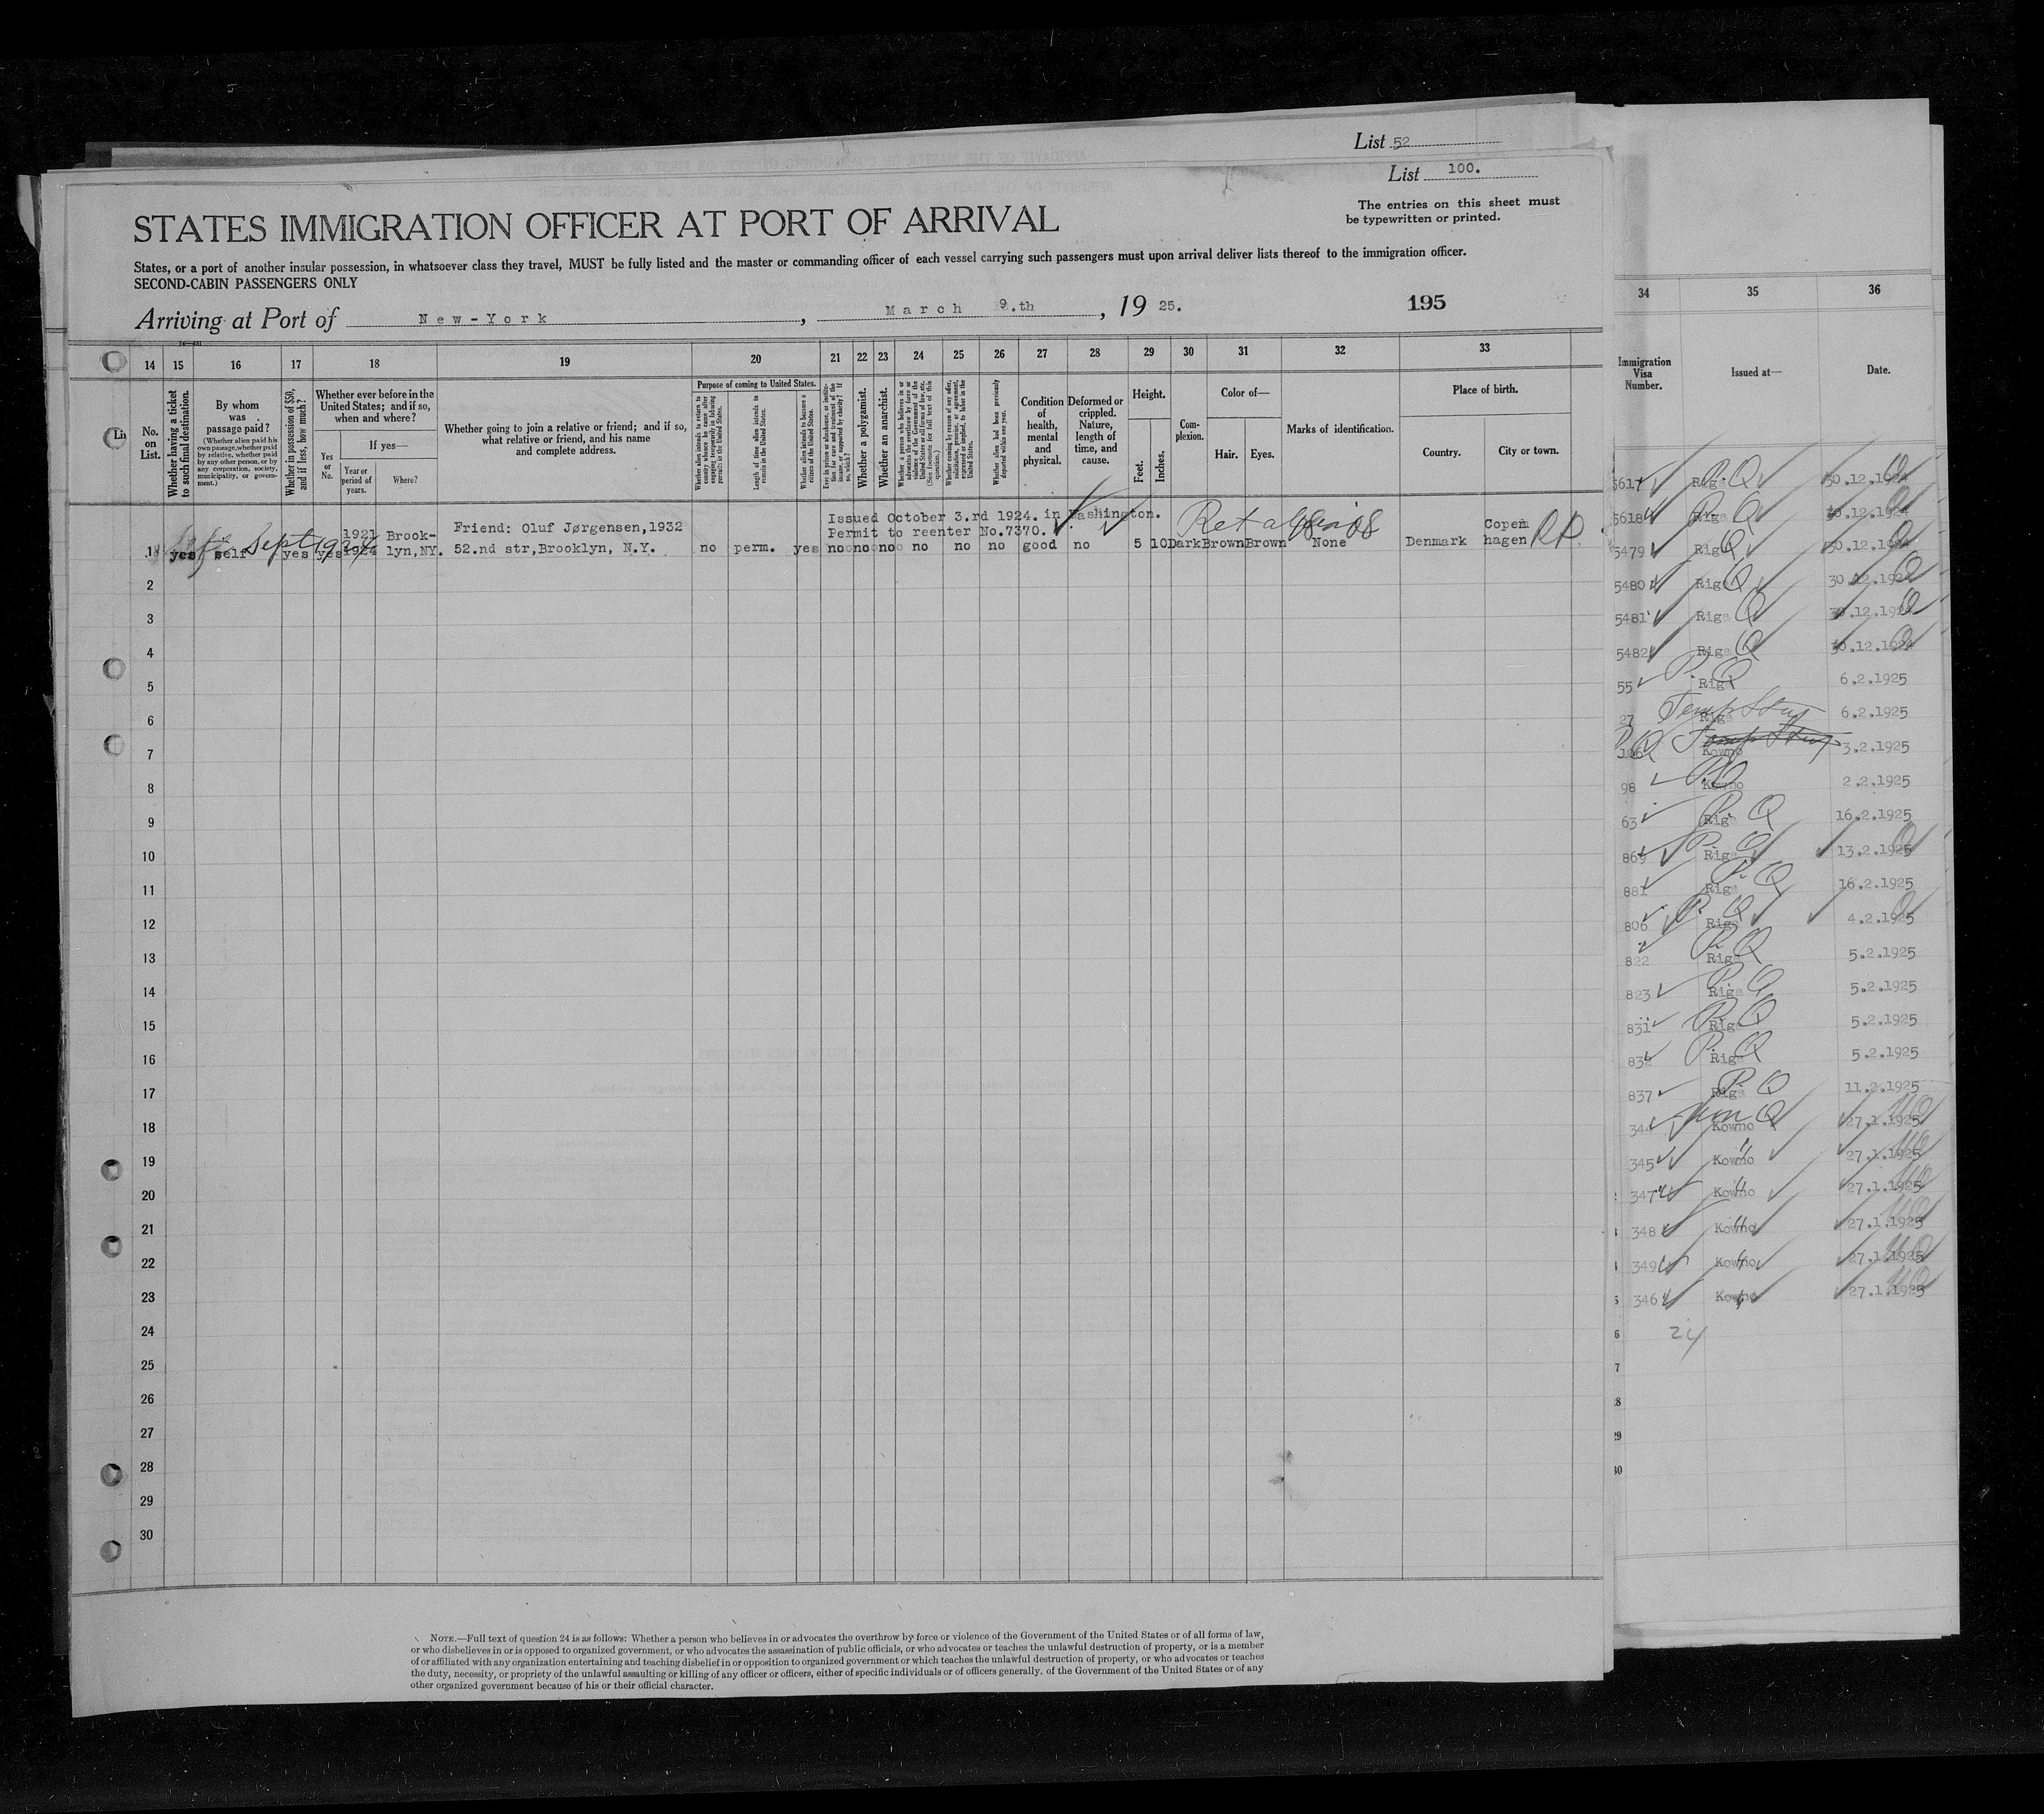 List 52
List 100.
The entries on this sheet must
be typewritten or printed.
STATES IMMIGRATION OFFICER AT PORT OF ARRIVAL
States, or a port of another insular possession, in whatsoever class they travel, MUST be fully listed and the master or commanding officer of each vessel carrying such passengers must upon arrival deliver lists thereof to the immigration officer.
SECOND-CABIN PASSENGERS ONLY
Arriving at Port of New-York, March 9.th, 19 25. 195
14 15 16 17 18 19 20 21 22 23 24 25 26 27 28 29 30 31 32 33
No. on List.
Whether having a ticket to such final destination.
By whom was passage paid?
(Whether alien paid his own passage, whether paid by relative, whether paid by any other person, or by any corporation, society, municipality, or government.)
Whether in possession of $50, and if less, how much?
Whether ever before in the United States; and if so, when and where?
Yes or No.
If yes—
Year or period of years.
Where?
Whether going to join a relative or friend; and if so, what relative or friend, and his name and complete address.
Purpose of coming to United States.
Whether alien intends to return to country whence he came after engaging temporarily in laboring pursuits in the United States.
Length of time alien intends to remain in the United States.
Whether alien intends to become a citizen of the United States.
Whether a polygamist.
Whether an anarchist.
Whether alien had been previously deported within one year.
Condition of health, mental and physical.
Deformed or crippled. Nature, length of time, and cause.
Height.
Feet.
Inches.
Complexion.
Color of—
Hair.
Eyes.
Marks of identification.
Place of birth.
Country.
City or town.
Issued October 3.rd 1924. in Washington.
Permit to reenter No.7370.
1 yes self Sept 1924 yes yes 1921 1924 Brook-
lyn,NY. Friend: Oluf Jørgensen,1932
52.nd str,Brooklyn, N.Y. no perm. yes no no no no no no good no 5 10 Dark Brown Brown None Denmark Copem
hagen
2
3
4
5
6
7
8
9
10
11
12
13
14
15
16
17
18
19
20
21
22
23
24
25
26
27
28
29
30
NOTE.—Full text of question 24 is as follows: Whether a person who believes in or advocates the overthrow by force or violence of the Government of the United States or of all forms of law,
or who disbelieves in or is opposed to organized government, or who advocates the assassination of public officials, or who advocates or teaches the unlawful destruction of property, or is a member
of or affiliated with any organization entertaining and teaching disbelief in or opposition to organized government or which teaches the unlawful destruction of property, or who advocates or teaches
the duty, necessity, or propriety of the unlawful assaulting or killing of any officer or officers, either of specific individuals or of officers generally, of the Government of the United States or of any
other organized government because of his or their official character.
34 35 36
Immigration Visa Number.
Issued at—
Date.
5617 Riga 30.12.1924
5618 Riga 30.12.1924
5479 Riga 30.12.1924
5480 Riga 30.12.1924
5481 Riga 30.12.1924
5482 Riga 30.12.1924
55 Riga 6.2.1925
27 Riga 6.2.1925
Kowno 3.2.1925
98 Kowno 2.2.1925
63 Riga 16.2.1925
869 Riga 13.2.1925
881 Riga 16.2.1925
806 Riga 4.2.1925
822 Riga 5.2.1925
823 Riga 5.2.1925
831 Riga 5.2.1925
832 Riga 5.2.1925
837 Riga 11.2.1925
344 Kowno 27.1.1925
345 Kowno 27.1.1925
347 Kowno 27.1.1925
348 Kowno 27.1.1925
349 Kowno 27.1.1925
346 Kowno 27.1.1925
24